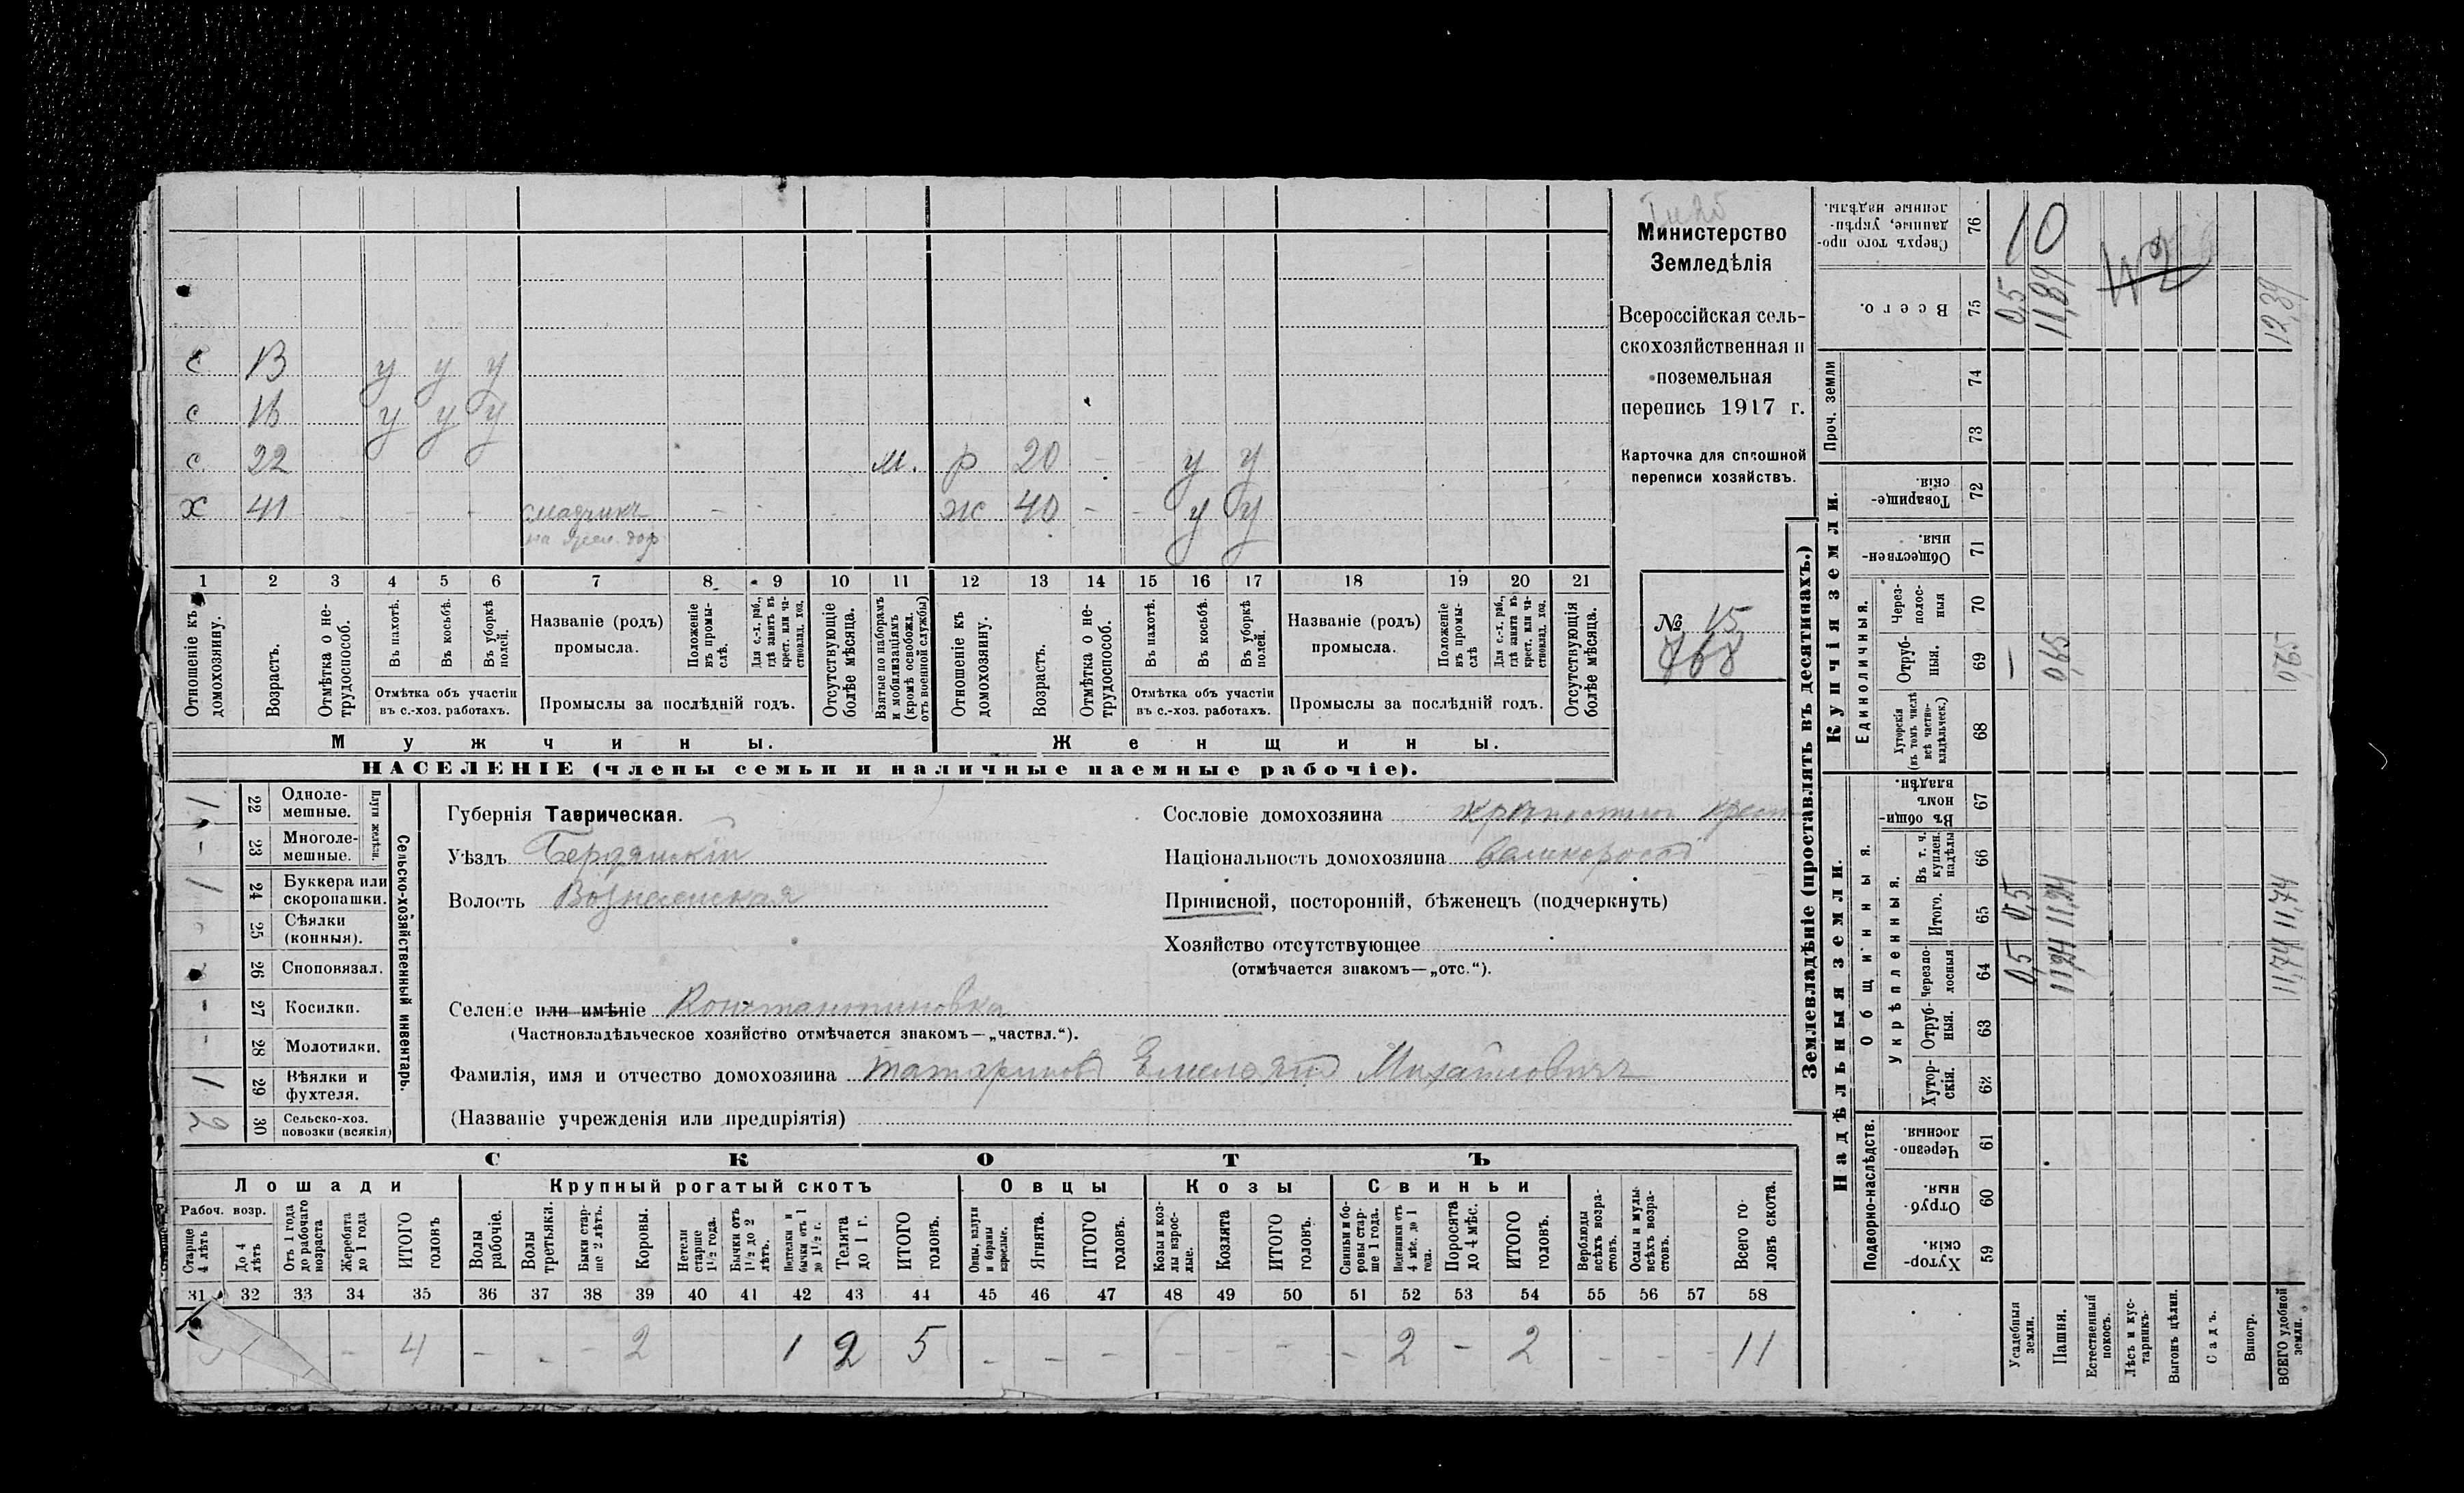 с 13 у у у
с 16 у у у
с 22 м. р 20 - - у у
х 41 - - - - смазчикъ - - ж 40 - - у у
на жел. дор
1 2 3 4 5 6 7 8 9 10 11 12 13 14 15 16 17 18 19 20 21
Отношеніе къ домохозяину.
Возрастъ.
Отмѣтка о нетрудоспособ.
Въ пахотѣ.
Въ косьбѣ.
Въ уборкѣ полей.
Отмѣтка объ участіи
въ с.-хоз. работахъ.
Названіе (родъ)
промысла.
Положеніе въ промыслѣ.
Для с.-х. раб., гдѣ занятъ въ крест. или частновлад. хоз.
Промыслы за послѣдній годъ.
Отсутствующіе болѣе мѣсяца.
Взятые по наборамъ и мобилизаціямъ (кромѣ освобожд. отъ военной службы)
Отношеніе къ домохозяину.
Возрастъ.
Отмѣтка о нетрудоспособ.
Въ пахотѣ.
Въ косьбѣ.
Въ уборкѣ полей.
Отмѣтка объ участіи
въ с.-хоз. работахъ.
Названіе (родъ)
промысла.
Положеніе въ промыслѣ
Для с.-х. раб., гдѣ занята въ крест. или частновлад. хоз.
Промыслы за послѣдній годъ.
Отсутствующія болѣе мѣсяца.
Мужчины.
Женщины.
НАСЕЛЕНІЕ (члены семьи и наличные наемные рабочіе).
Министерство
Земледѣлія
Всероссійская сель-
скохозяйственная и
поземельная
перепись 1917 г.
Карточка для сплошной
переписи хозяйствъ.
№ 15
768
Сельско-хозяйственный инвентарь.
Плуги желѣзн.
1 22 Одноле-
мешные.
- 23 Многоле-
мешные.
1 24 Буккера или
скоропашки.
25 Сѣялки
(конныя).
26 Сноповязал.
- 27 Косилки.
- 28 Молотилки.
1 29 Вѣялки и
фухтеля.
2 30 Сельско-хоз.
повозки (всякія)
Губернія Таврическая.
Уѣздъ Бердянскій
Волость Вознесенская
Селеніе или имѣніе Константиновка
(Частновладѣльческое хозяйство отмѣчается знакомъ—„частвл.“).
Фамилія, имя и отчество домохозяина Татариновъ Емельянъ Михайловичъ
(Названіе учрежденія или предпріятія)
Сословіе домохозяина крест
Національность домохозяина великоросъ
Приписной, посторонній, бѣженецъ (подчеркнуть)
Хозяйство отсутствующее
(отмѣчается знакомъ—„отс.“).
СКОТЪ
Лошади
Крупный рогатый скотъ
Овцы
Козы
Свиньи
Рабоч. возр.
Старше 4 лѣтъ
До 4 лѣтъ
Отъ 1 года до рабочаго возраста
Жеребята до 1 года
ИТОГО головъ
Волы рабочіе.
Волы третьяки.
Быки старше 2 лѣтъ.
Коровы.
Нетели старше 1½ года.
Бычки отъ 1½ до 2 лѣтъ.
Подтелки и бычки отъ 1 до 1½ г.
Телята до 1 г.
ИТОГО головъ.
Овцы, валухи и бараны взрослые.
Ягнята.
ИТОГО головъ.
Козы и козлы взрослые.
Козлята
ИТОГО головъ.
Свиньи и боровы старше 1 года.
Подсвинки отъ 4 мѣс. до 1 года.
Поросята до 4 мѣс.
ИТОГО головъ.
Верблюды всѣхъ возрастовъ.
Ослы и мулы всѣхъ возрастовъ.
Всего головъ скота.
31 32 33 34 35 36 37 38 39 40 41 42 43 44 45 46 47 48 49 50 51 52 53 54 55 56 57 58
- 4 - - - 2 1 2 5 - - - - - - - 2 - 2 - - - 11
Землевладѣніе (проставлять въ десятинахъ.)
Надѣльныя земли.
Купчія земли.
Проч. земли
Подворно-наслѣдств.
Общинныя.
Укрѣпленныя.
Единоличныя.
Хутор-
скія. 59
Отруб-
ныя. 60
Черезпо-
лосныя. 61
Хутор-
скія. 62
Отруб-
ныя. 63
Черезпо-
лосныя 64
Итого. 65
Въ т. ч. куплен. надѣлы 66
Въ общин-
номъ
владѣн. 67
Хуторскія (въ томъ числѣ всѣ частновладѣльческ.) 68
Отруб-
ныя. 69
Через-
полос-
ныя 70
Обществен-
ныя. 71
Товарище-
скія. 72
73
74
Всего. 75
Сверхъ того про-
данные, укрѣп-
ленные надѣлы. 76
Усадебныя земли. 0,5 0,5 — 0,5 10
Пашня. 11,24 11,24 0,65 11,89
Естественный покосъ.
Лѣсъ и кустарникъ.
Выгонъ цѣлин.
Садъ.
Виногр.
ВСЕГО удобной земли. 11,74 11,74 0,65 12,39
№2